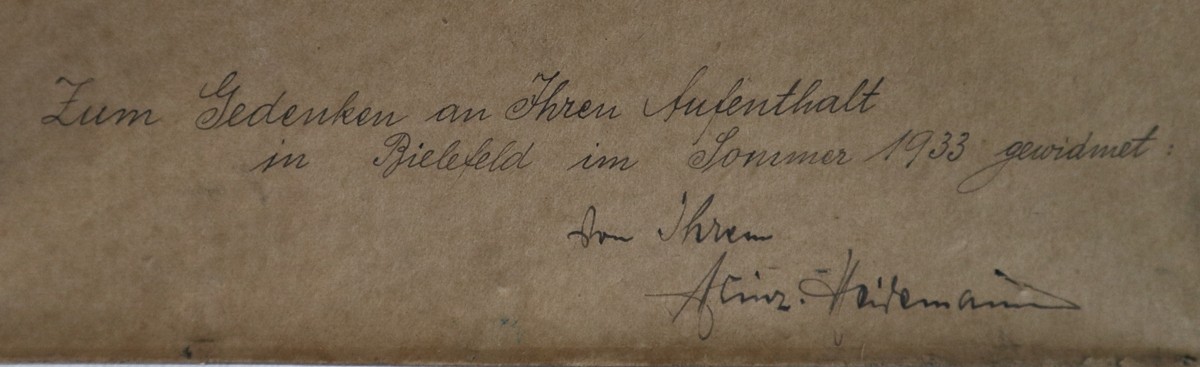 Zum Gedenken an Ihren Aufenthalt
in Bielefeld im Sommer 1933 gewidmet:
von Ihrem
Heinz. Heidemann